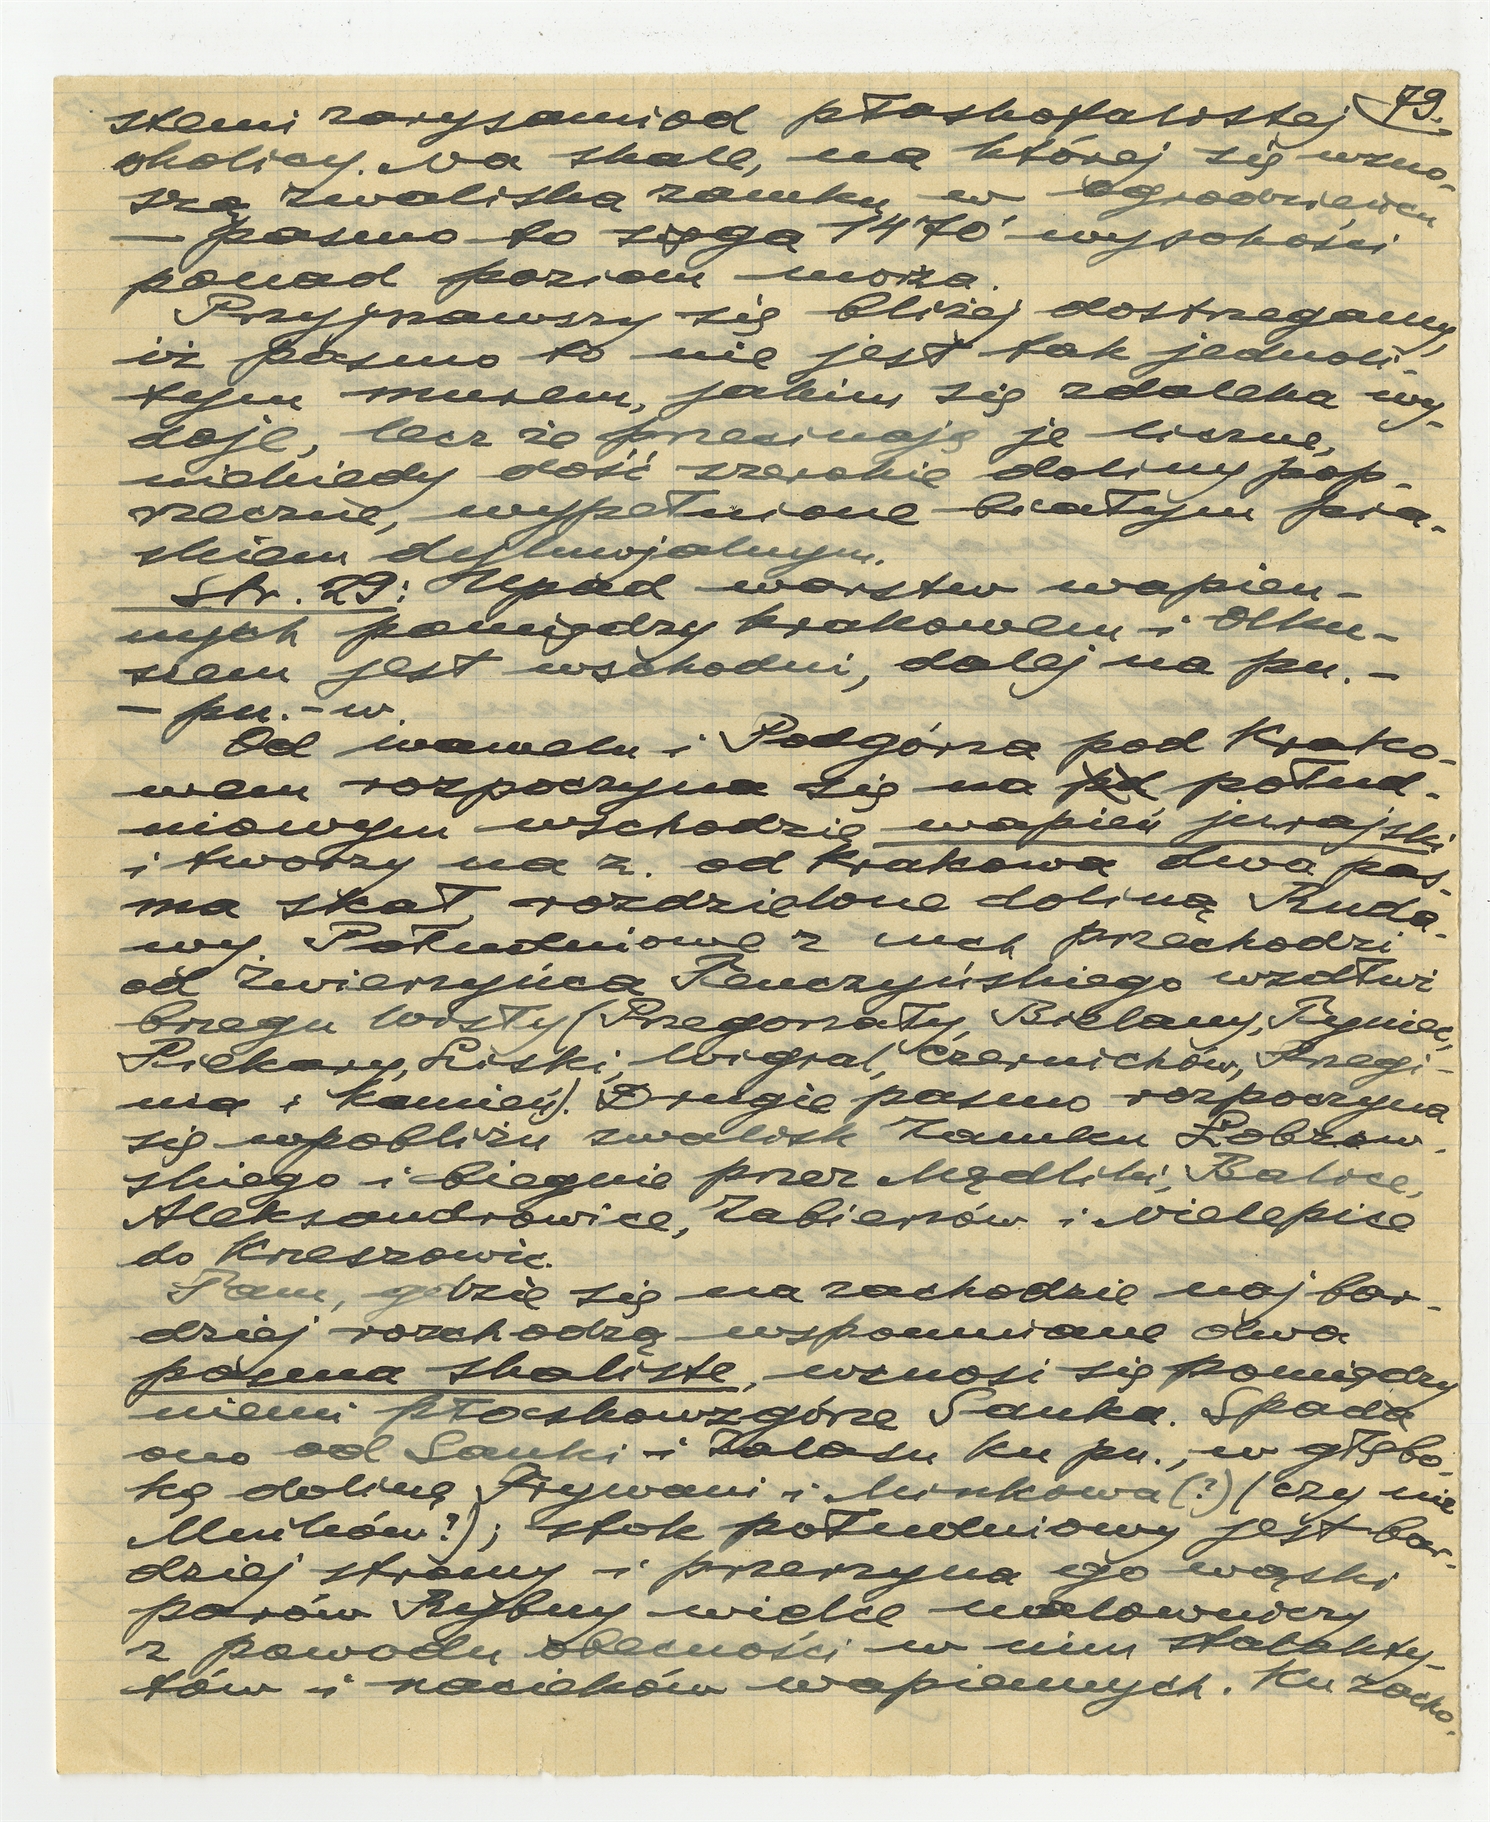 79.
stemi zarysami od płaskofalistej
okolicy. Na skale, na której się wzno-
szą zwaliska zamku w Ogrodzieńcu
— pasmo to sięga 1470' wysokości
ponad poziom morza.
Przyjrzawszy się bliżej dostrzegamy,
iż pasmo to nie jest tak jednoli-
tym murem, jakim się zdaleka wy-
daje, lecz że przecinają je liczne,
niekiedy dość szerokie doliny pop-
rzeczne, wypełnione białym pia-
skiem dyluwjalnym.
Str. 29: Upad warstw wapien-
nych pomiędzy Krakowem i Olku-
szem jest wschodni, dalej na pn.-
— pn.-w.
Od Wawelu i Podgórza pod Krako-
wem rozpoczyna się na połud-
niowym wschodzie wapień jurajski
i tworzy na z. od Krakowa dwa pas-
ma skał, rozdzielone doliną Ruda-
wy. Południowe z nich przechodzi
od Zwierzyńca Tenczyńskiego wzdłuż
brzegu Wisły (Przegorzały, Bielany, Tyniec,
Piekary, Liski, Wigrał, Czernichów, Przegi-
nia i Kamień). Drugie pasmo rozpoczyna
się wpobliżu zwalisk Zamku Łobzow-
skiego i biegnie przez Mydlniki, Balice,
Aleksandrowice, Zabierzów i Nielepice
do Krzeszowic.
Tam, gdzie się na zachodzie naj bar-
dziej rozchodzą wspomniane dwa
pasma skaliste, wznosi się pomiędzy
niemi płaskowzgórze Sanka. Spada
ono od Sanki i Zalasu ku pn., w głębo-
ką dolinę Frywani i Minkowa (?) (czy nie
Mników?); stok południowy jest bar-
dziej stromy i przerzyna go wąski
parów Rybny wielce malowniczy
z powodu obecności w nim stalakty-
tów i nacieków wapiennych. Ku zacho-